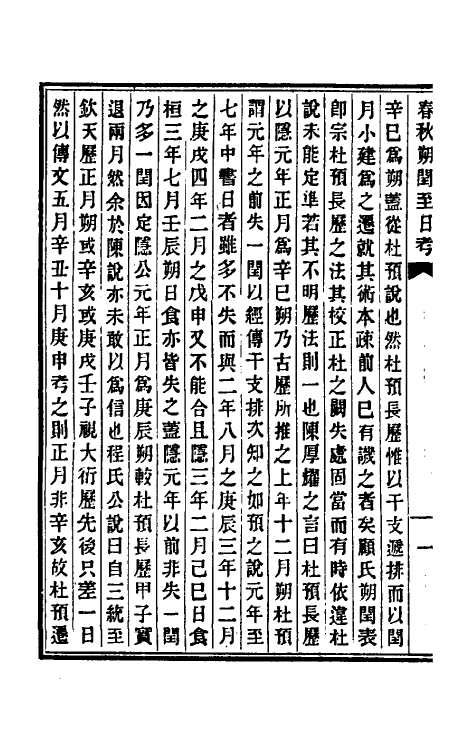 春秋朔閏至日考
一
辛巳爲朔蓋從杜預說也然杜預長歷惟以干支遞排而以閏
月小建爲之遷就其術本疎前人巳有譏之者矣顧氏朔閏表
卽宗杜預長歷之法其校正杜之闕失處固當而有時依違杜
說未能定準若其不明歷法則一也陳厚耀之言曰杜預長歷
以隱元年正月爲辛巳朔乃古歷所推之上年十二月朔杜預
謂元年之前失一閏以經傳干支排次知之如預之說元年至
七年中書日者雖多不失而與二年八月之庚辰三年十二月
之庚戌四年二月之戊申又不能合且隱三年二月己巳日食
桓三年七月壬辰朔日食亦皆失之蓋隱元年以前非失一閏
乃多一閏因定隱公元年正月爲庚辰朔較杜預長歷甲子實
退兩月然余於陳說亦未敢以爲信也程氏公說曰自三統至
欽天歷正月朔或辛亥或庚戌壬子視大衍歷先後只差一日
然以傳文五月辛丑十月庚申考之則正月非辛亥故杜預遷